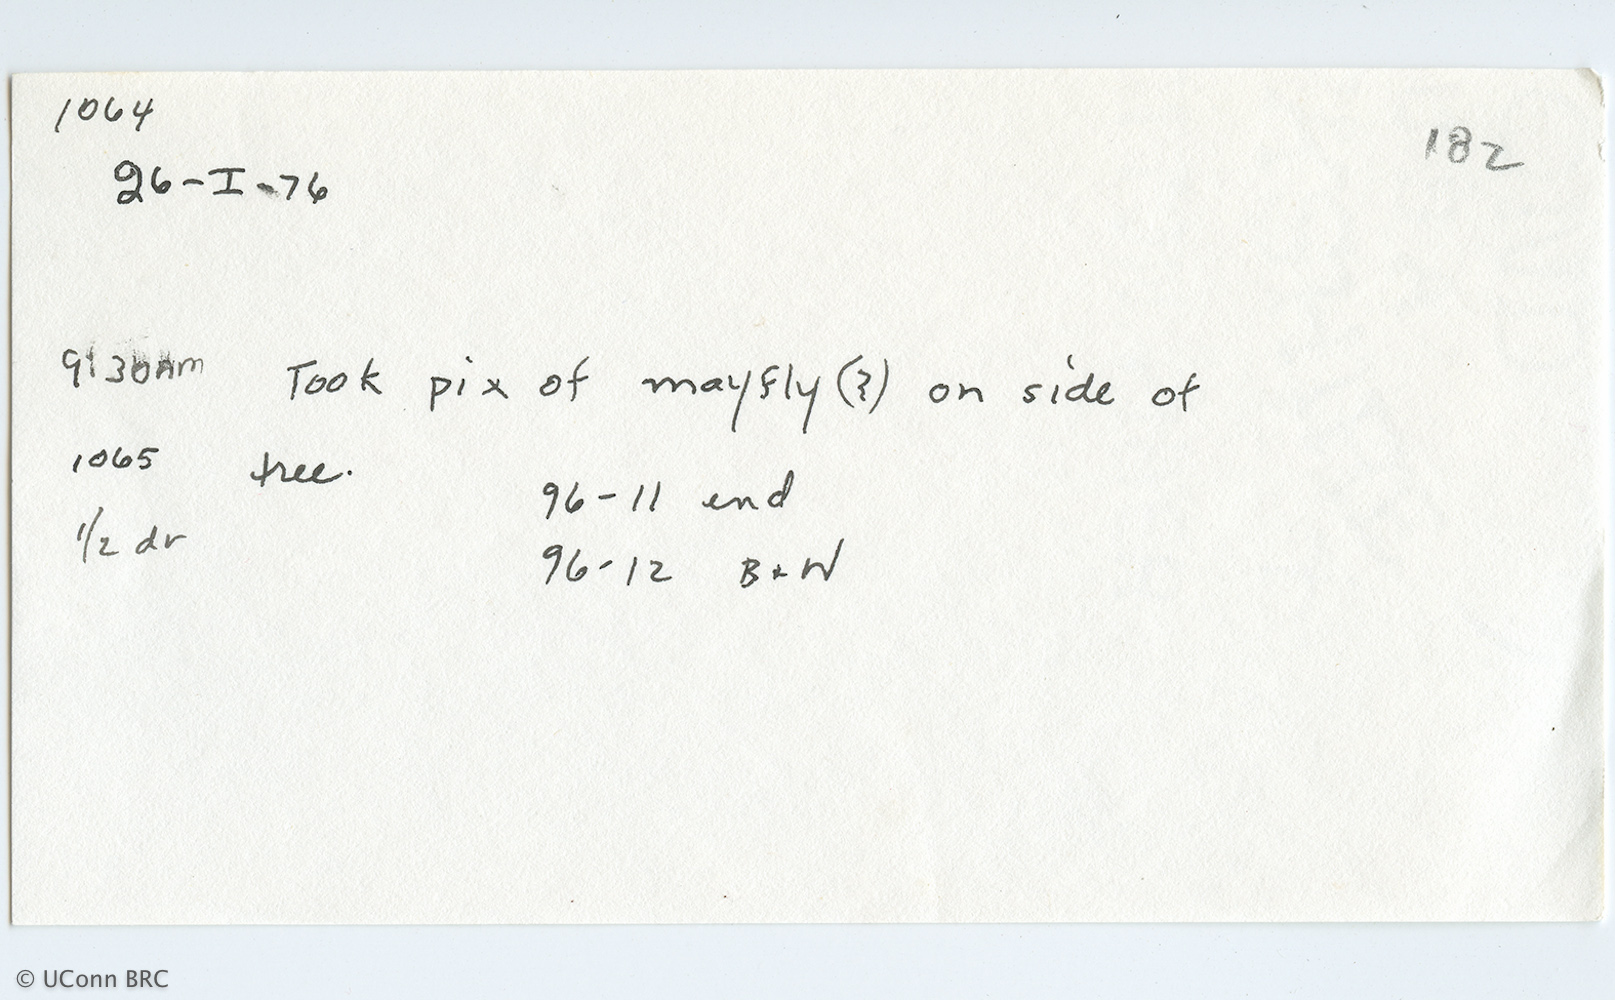 1064
182
26-I-76
9:30AM Took pix of mayfly(?) on side of
1065 tree.
96-11 end
1/2 dr
96-12 B+W
© UConn BRC